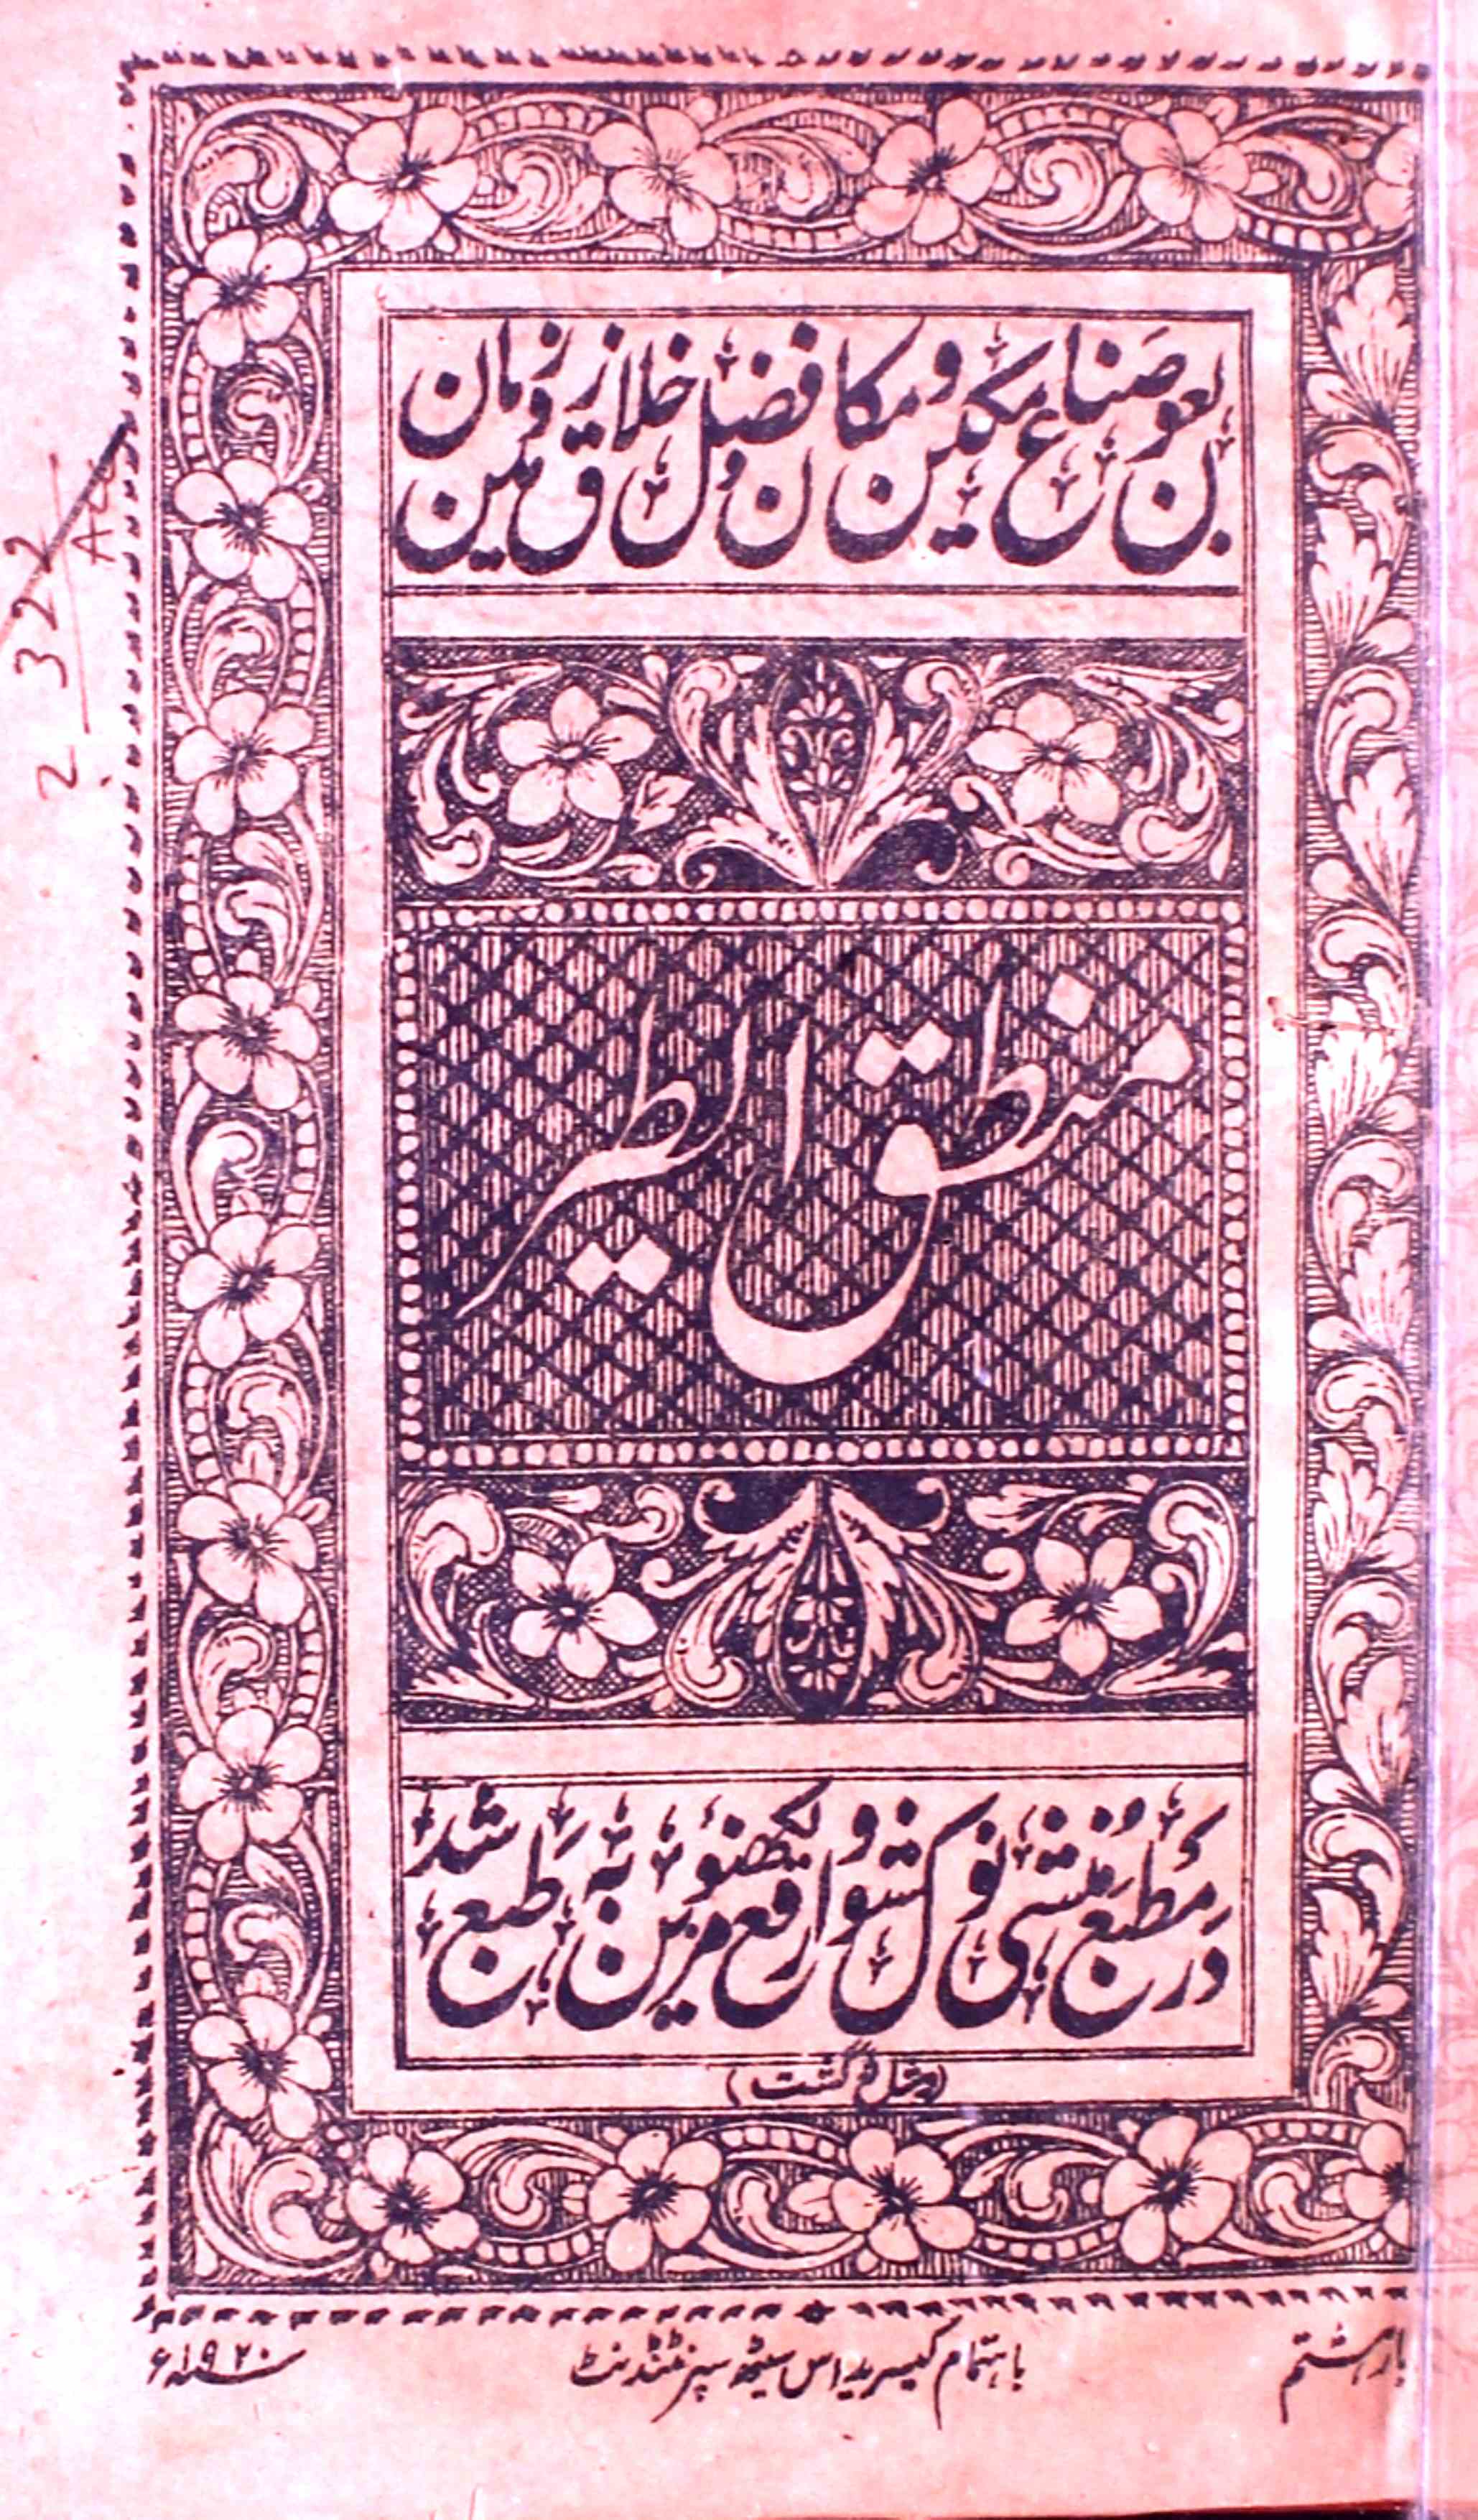 بعون صناع مکین و مکان و فضل خلاق زمین و زمان
منطق الطیر
در مطبع منشی نولکشور واقع لکھنؤ مزین بہ طبع شد
بار ہشتم
باہتمام کیسریداس سیٹھ سپرنٹنڈنٹ
سنہ ۱۹۲۰ء
2 322